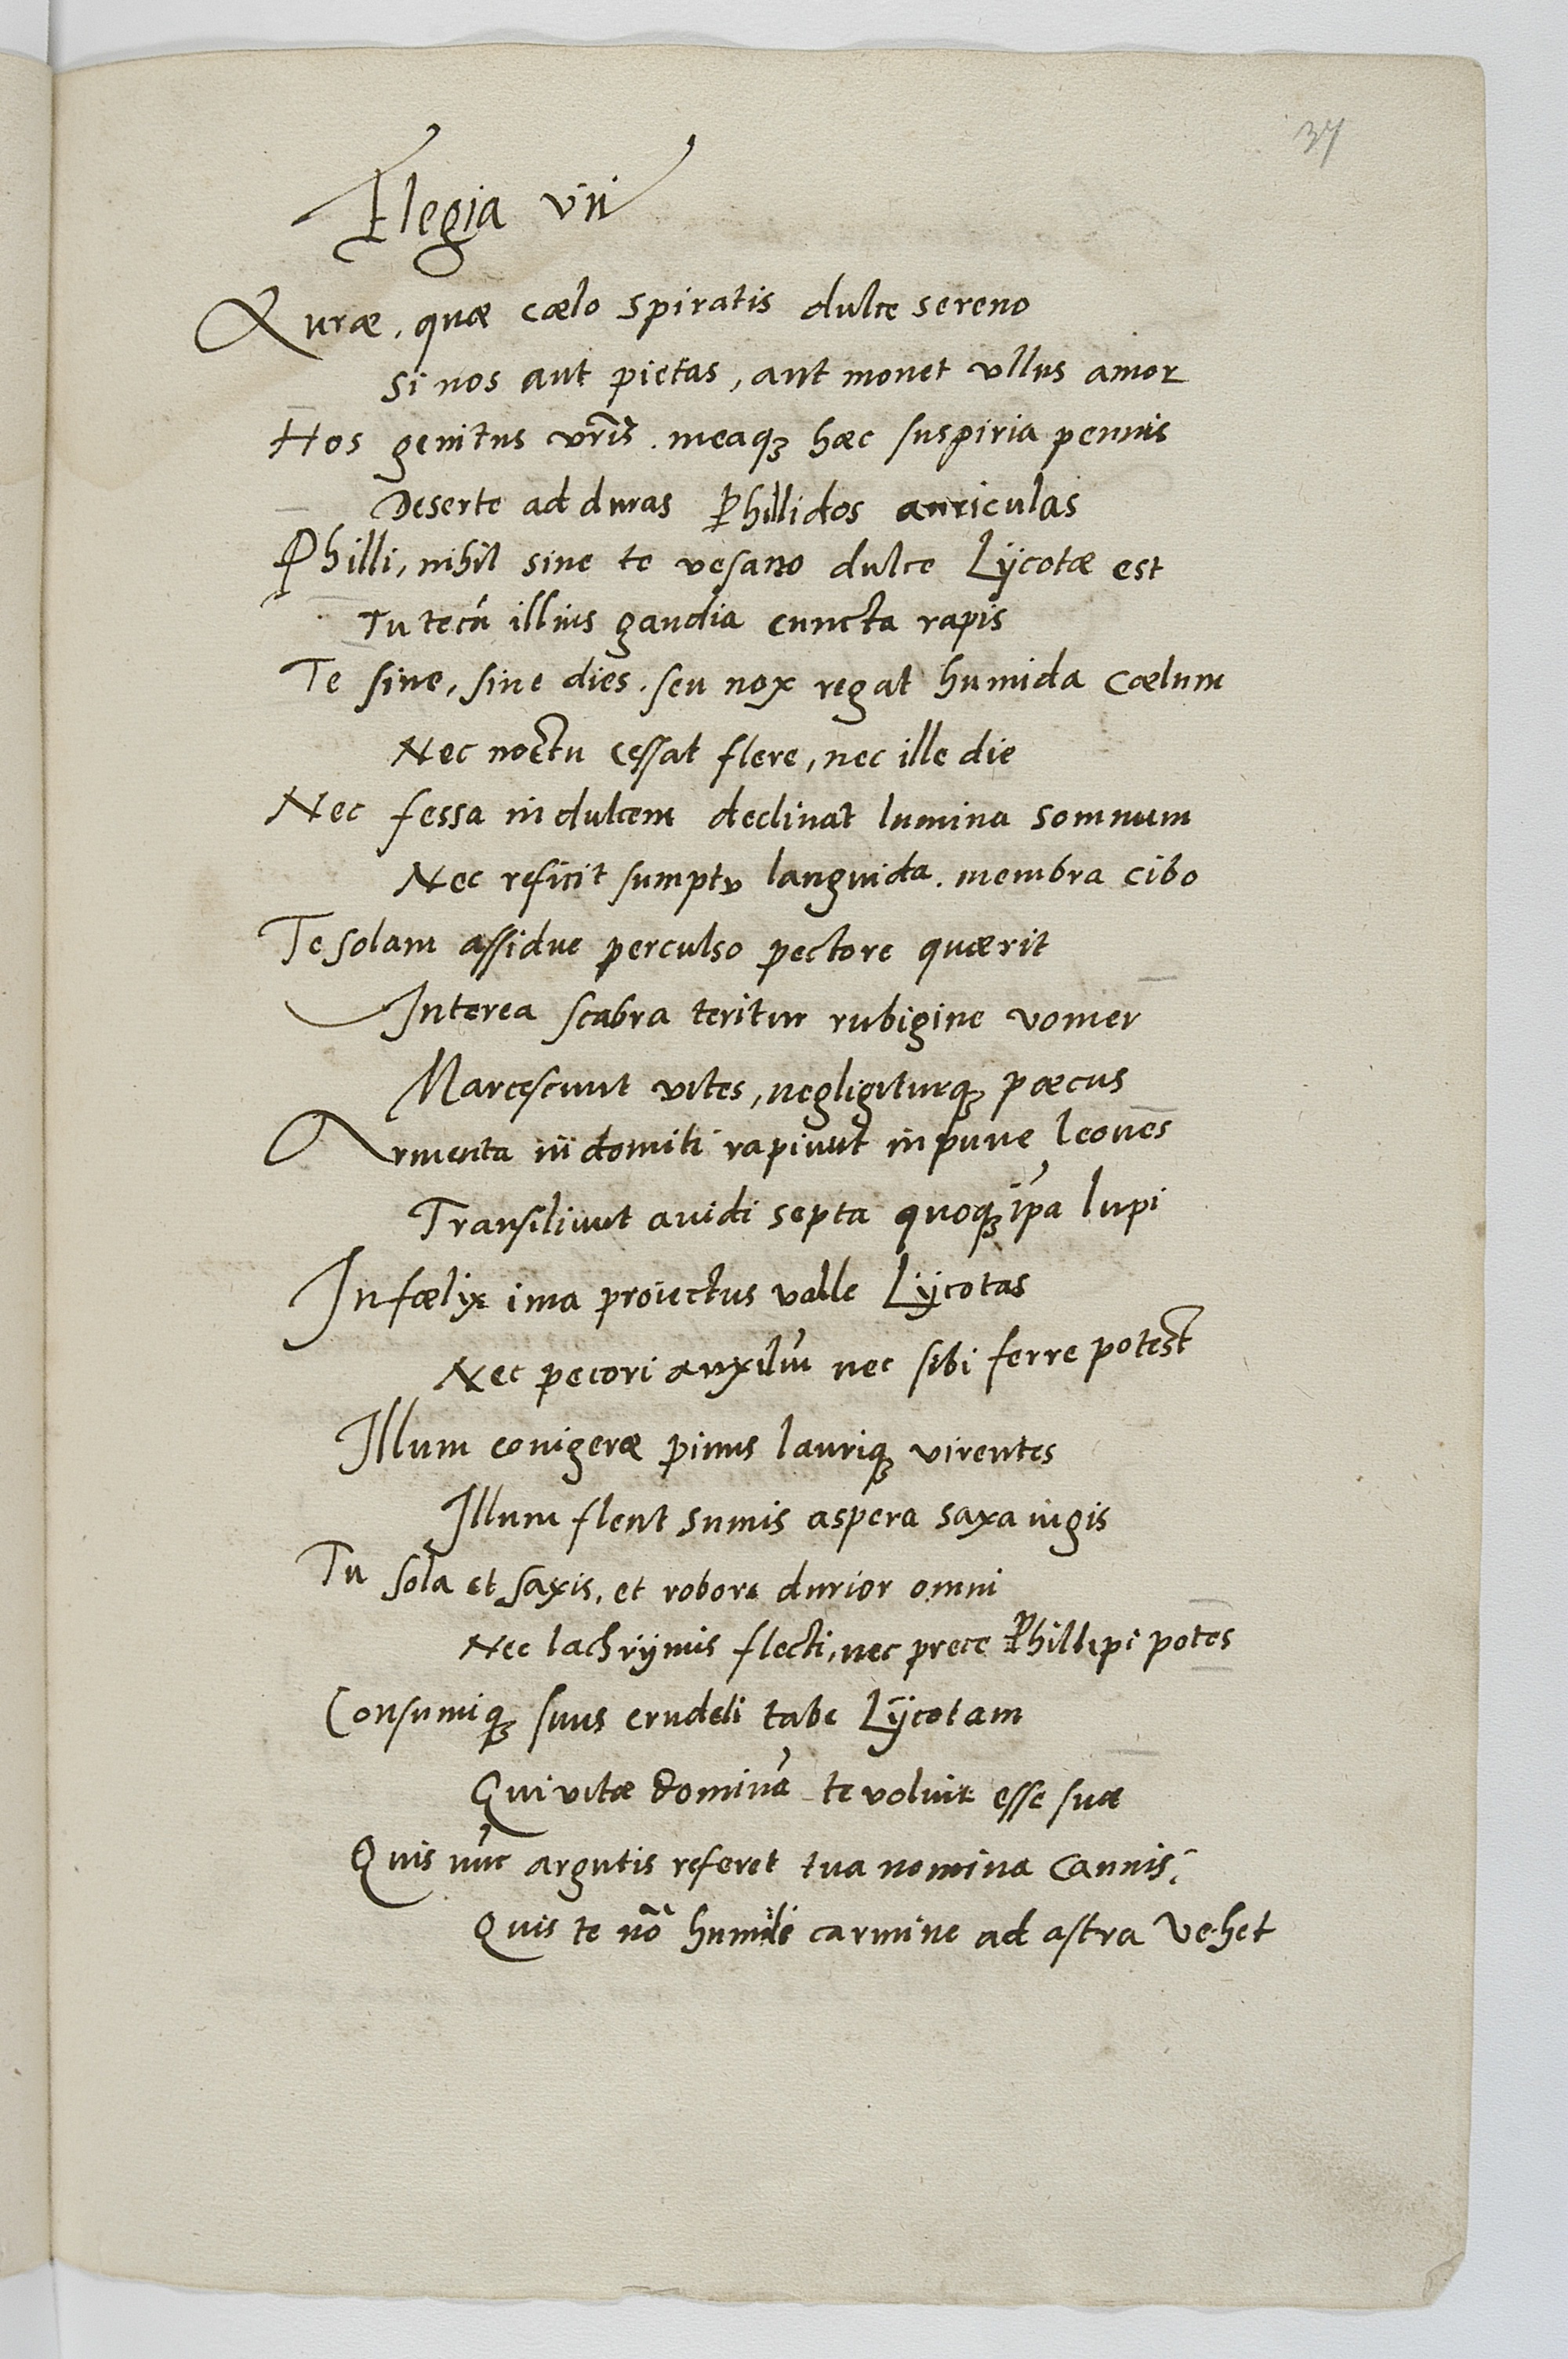 37
Elegia vii
Auræ, quæ cælo spiratis dulce sereno
Si nos aut pietas, aut mouet ullus amor
Hos gemitus vr̃is. meaqꝫ hæc suspiria pennis
Deserte ad duras Phillidos auriculas
Philli, nihil sine te vesano dulce Lÿcotæ est
Tu tecũ illius gaudia cuncta rapis
Te sine, sine dies. seu nox regat humida cælum
Nec noctu cessat flere, nec ille die
Nec fessa in dulcem declinat lumina somnum
Nec reficit sumpto languida. membra cibo
Te solam assidue perculso pectore quærit
Interea scabra teritur rubigine vomer
Marcescunt vites, negligiturqꝫ pæcus
Armenta indomiti rapiunt inpune leones
Transiliunt auidi septa quoqꝫ ip̃a lupi
Infælix ima proiectus valle Lÿcotas
Nec pecori auxiliũ nec sibi ferre potest
Illum conigeræ pinus lauriqꝫ virentes
Illum flent sumis aspera saxa iugis
Tu sola et saxis, et robore durior omni
Nec lachrÿmis flecti, nec prece Phillipi potes
Consumiqꝫ suus crudeli tabe Lÿcotam
Qui vitæ dominã te voluit esse suæ
Quis nũc argutis referet tua nomina cannis?
Quis te nõ humili carmine ad astra vehet